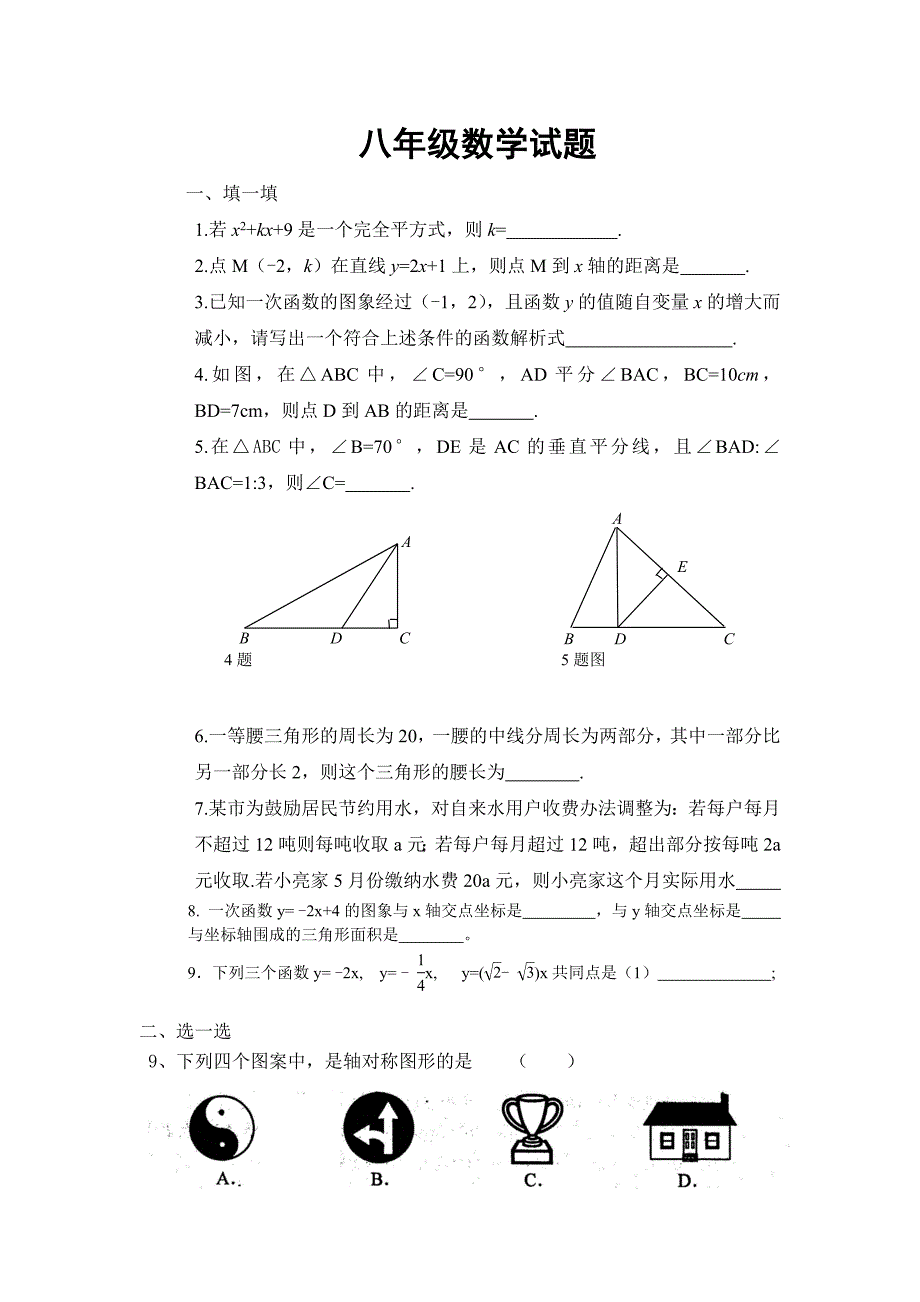 八年级数学试题
一、填一填
1.若x²+kx+9是一个完全平方式，则k=____________.
2.点M（-2，k）在直线y=2x+1上，则点M到x轴的距离是_______.
3.已知一次函数的图象经过（-1，2），且函数y的值随自变量x的增大而
减小，请写出一个符合上述条件的函数解析式__________________.
4.如图，在△ABC中，∠C=90°，AD平分∠BAC，BC=10cm，
BD=7cm，则点D到AB的距离是_______.
5.在△ABC中，∠B=70°，DE是AC的垂直平分线，且∠BAD:∠
BAC=1:3，则∠C=_______.
A
B D C
4题
A
E
B D C
5题图
6.一等腰三角形的周长为20，一腰的中线分周长为两部分，其中一部分比
另一部分长2，则这个三角形的腰长为________.
7.某市为鼓励居民节约用水，对自来水用户收费办法调整为：若每户每月
不超过12吨则每吨收取a元；若每户每月超过12吨，超出部分按每吨2a
元收取.若小亮家5月份缴纳水费20a元，则小亮家这个月实际用水_____
8. 一次函数y= -2x+4的图象与x轴交点坐标是_________，与y轴交点坐标是_____
与坐标轴围成的三角形面积是________。
9．下列三个函数y= -2x, y= - 1/4x, y=(√2- √3)x共同点是（1）______________;
二、选一选
9、下列四个图案中，是轴对称图形的是 （ ）
A. B. C. D.